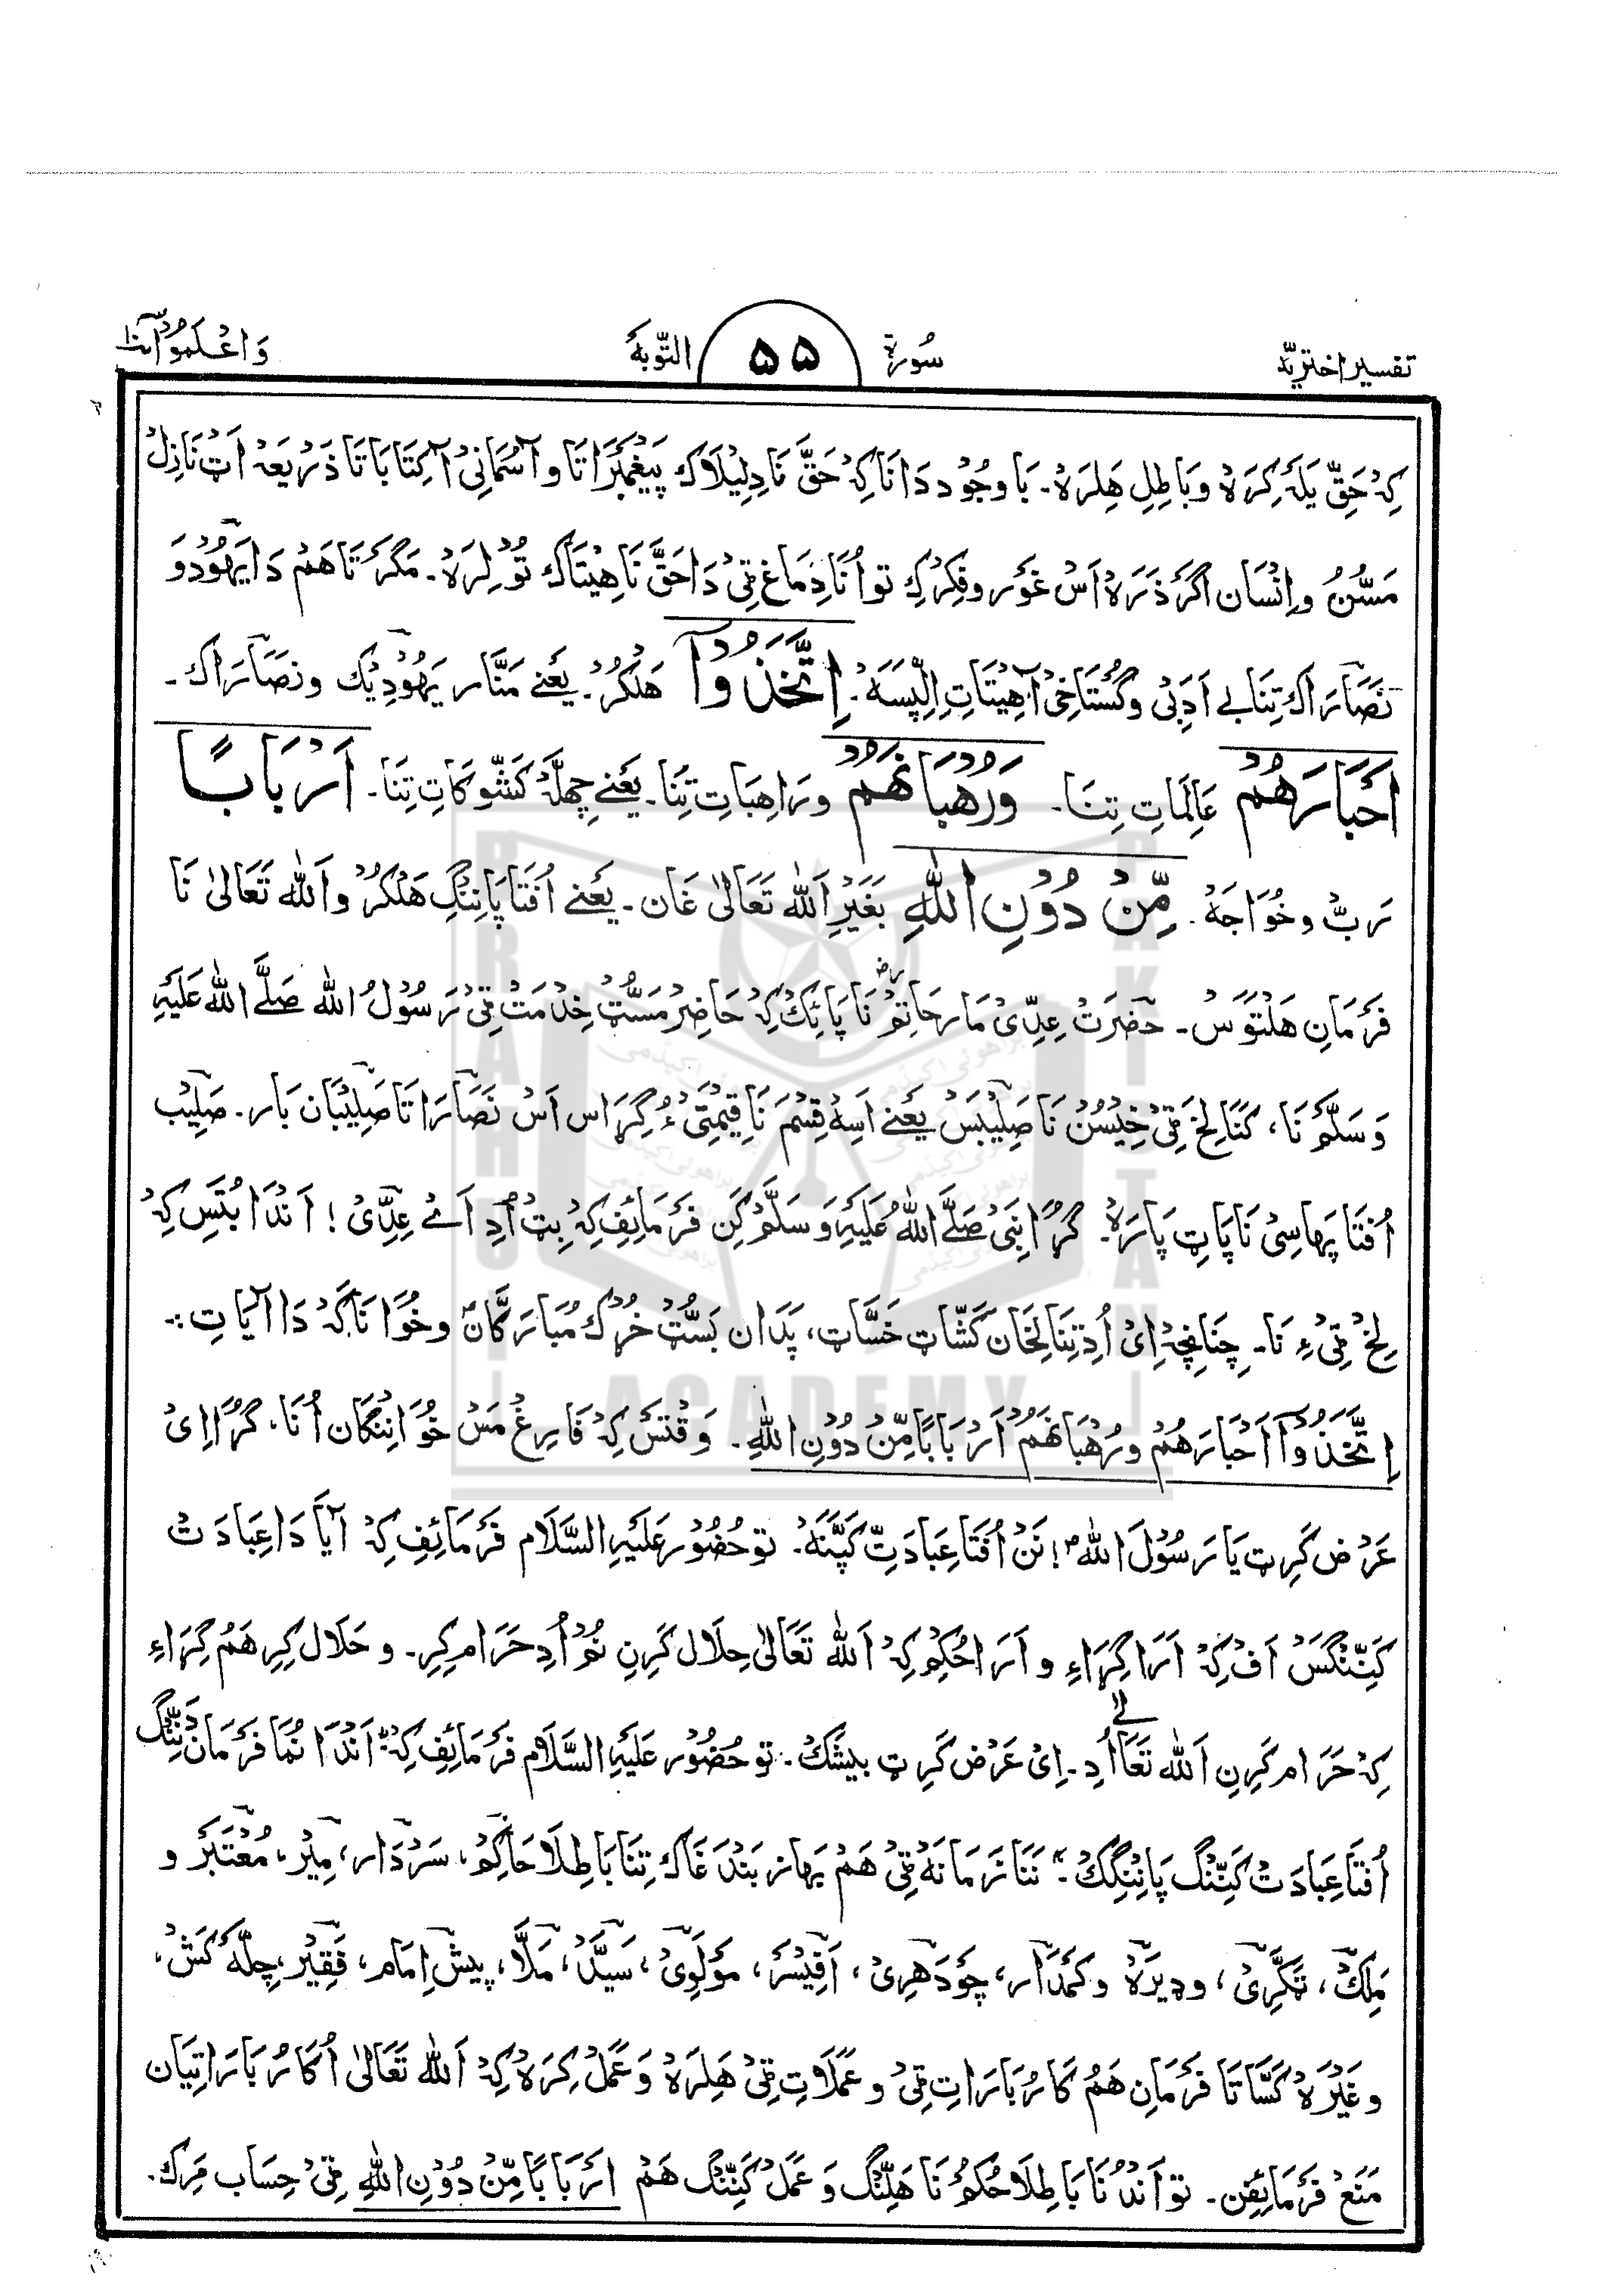 تفسیر اختریہ
سُورۃ ۵۵ التّوبہ
وَاعْلَمُوْآ
کِہْ حَقِّ یَلَہ کِرَہْ وَبَاطِلِ ھِلِرَہْ۔ بَاوجُوْد دَانَاکِہْ حَقَّ نَادِلِیْلَاک پَیْغَمْبَرَاتَا و آسْمَانِیْ آ کِتَابَاتَا ذَرِیْعَہْ اَٹ نَازِلْ
مَسُّنُ و اِنْسَان اَگَر ذَرَہْ اَسْ غَوَر و فِکِرْ کِ تو اُنَا دِمَاغ ٹِیْ دَا حَقَّ نَا ھِیْتَاک تُوْلِرَہْ۔ مَگَر تَاھَم دَا یَہُوْد وَ
نَصَارَاک تِنَا بے اَدَبِی و گُسْتَاخِیْ آ ھِیْتَاتِ اِلِّپَسَہْ۔ اِتَّخَذُوْآ ھَلْکُرْ۔ یَعْنے مَنَّار یَہُوْدِیْک و نصَارَاک۔
اَحْبَارَھُمْ عَالِمَاتِ تِنَا۔ وَرُھْبَانَھُمْ و رَاھِبَاتِ تِنَا۔ یَعْنے چِھلَّہ کَشّوکَاتِ تِنَا۔ اَرْبَابًا
رَبّ و خُوَاجَہْ۔ مِّنْ دُوْنِ اللّٰہِ بَغَیْرِ اَللّٰہ تَعَالٰی غَان۔ یَعْنے اُفْتَا پَانِنْگِ ھَلْکُرْ و اَللّٰہ تَعَالیٰ نَا
فَرْمَانِ ھَلْتَوْسْ۔ حضرَتْ عِدِّیْ مَار حَاتِمْ نَا پَائِکْ کِہْ حَاضِرْ مَسُّٹ خِدْمَتْ ٹِیْ رَسُوْلُ اللّٰہ صَلَّے اللّٰہ عَلَیْہِ
وَسَلَّمْ نَا، کَنَا لِخْ ٹِیْ خِیْسُنْ نَا صَلِیْبَسْ یَعْنے اَسِہْ قِسْمَ نَا قِیْمَتِیْ ءُ گِرَاس اَسْ نَصَارَا تَا صَلِیْبَان بَار۔ صَلِیْب
اُفْتَا پھَاسِیْ نَا پَاتِ پَارَہْ۔ گُرَا نَبِیْ صَلَّے اللّٰہُ عَلَیْہِ وَسَلَّمْ کَن فَرْمَائِف کِہْ بِٹ اُدِ اَے عِدِّیْ! اَنْدَا بُتَسِ کِہْ
لِخْ ٹِیْ ءِ نَا۔ چِنَانْچِہْ اِیْ اُدِ تِنَا لِخَان کَشَّاٹ خَسَّاٹ، پَدَان بَسُّٹ خُرْک مُبَارَکَّان و خُوَانَاکَہْ دَا آیَاتِ ۔:
اِتَّخَذُوْآ اَحْبَارَھُمْ وَرُھْبَانَھُمْ اَرْبَابًا مِّنْ دُوْنِ اللّٰہِ۔ وَقْتَسْ کِہْ فَارِغْ مَسْ خُوَانِنْگَان اُنَا، گُرَا اِیْ
عَرْض کَرِٹ یَا رَسُوْلَ اللّٰہ! نَنْ اُفْتَا عِبَادَتِ کَپَّنَہْ۔ تو حُضُوْر عَلَیْہِ السَّلَام فَرْمَائِف کِہْ آیَا دَا عِبَادَتْ
کَنِّنْگَسْ اَفْ کِہْ اَرَا گِرَاءِ و اَرَا حُکِمْ کِہْ اَللّٰہ تَعَالیٰ حِلَال کَرِنِ نُمْ اُدِ حَرَام کِرِ۔ و حَلَال کِرِ ھَمُ گِرَاءِ
کِہْ حَرَام کَرِنِ اَللّٰہ تَعَالٰی اُدِ۔ اِیْ عَرْض کَرِٹ بیشَکْ۔ تو حُضُوْر عَلَیْہِ السَّلَام فَرْمَائِف کِہْ: اَنْدَا نُمَا فَرْمَان
اُفْتَا عِبَادَتْ کَنِّنْگ پَانِنْگِکْ۔ نَنَا زَمَانَہْ ٹِیْ ھَمْ بَھَاز بَنْدَغَاک تِنَا بَاطِلَا حَاکِمْ، سَرْدَار، مِیْر، مُعْتَبَرْ و
مَلِکْ، ٹَکَّرِیْ، وڈیرَہْ و کَمْدَار، چَوْدَھْرِیْ، آفِیْسَرْ، مَوْلَوِیْ، سَیِّدْ، مَلَّا، پیش اِمَام، فَقِیْر، چِلَّہ کَشْ،
وغَیْرَہْ کَسَّاتَا فَرْمَانِ ھَمُ کَارُبَارَاتِ ٹِیْ و عَمَلَاتِ ٹِیْ ھَلِرَہْ وَ عَمَلْ کِرَہْ کِہْ اَللّٰہ تَعَالیٰ اُ کَارُبَارَاتِیَان
مَنَعْ فَرْمَائِفِن۔ تو اَنْدُنَا بَاطِلَا حُکْمُ نَا ھَلِّنْگ وَ عَمَلْ کَنِّنْگ ھَمْ اَرْبَابًا مِّنْ دُوْنِ اللّٰہِ ٹِیْ حِسَاب مَرِک۔
BRAHUI ACADEMY PAKISTAN